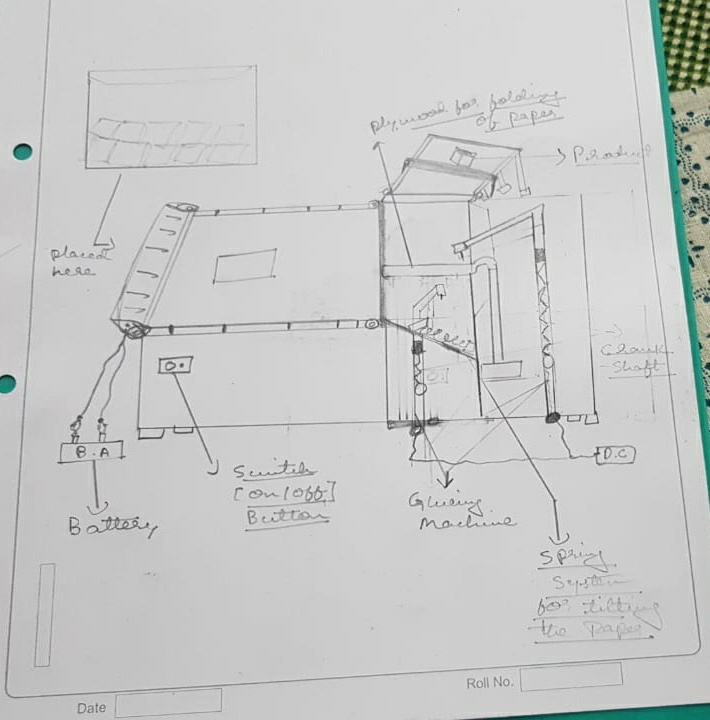 plywood for folding
of paper
Product
placed
here
Crank
Shaft
O.
B.A
D.C
Switch
[on/off]
Button
Battery
Glueing
Machine
Spring
System
for tilting
the Paper
Roll No.
Date